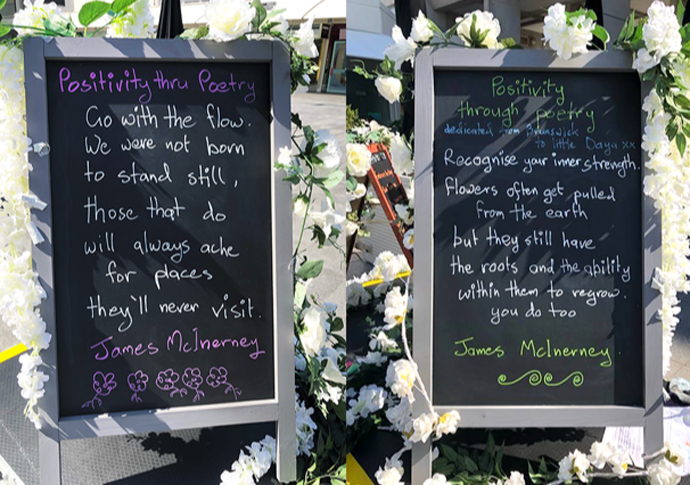 Positivity thru Poetry
Go with the flow.
We were not born
to stand still,
those that do
will always ache
for places
they'll never visit.
James McInerney
Positivity
through poetry
dedicated from Brunswick
to little Daya xx
Recognise your inner strength.
flowers often get pulled
from the earth
but they still have
the roots and the ability
within them to regrow.
you do too
James McInerney.